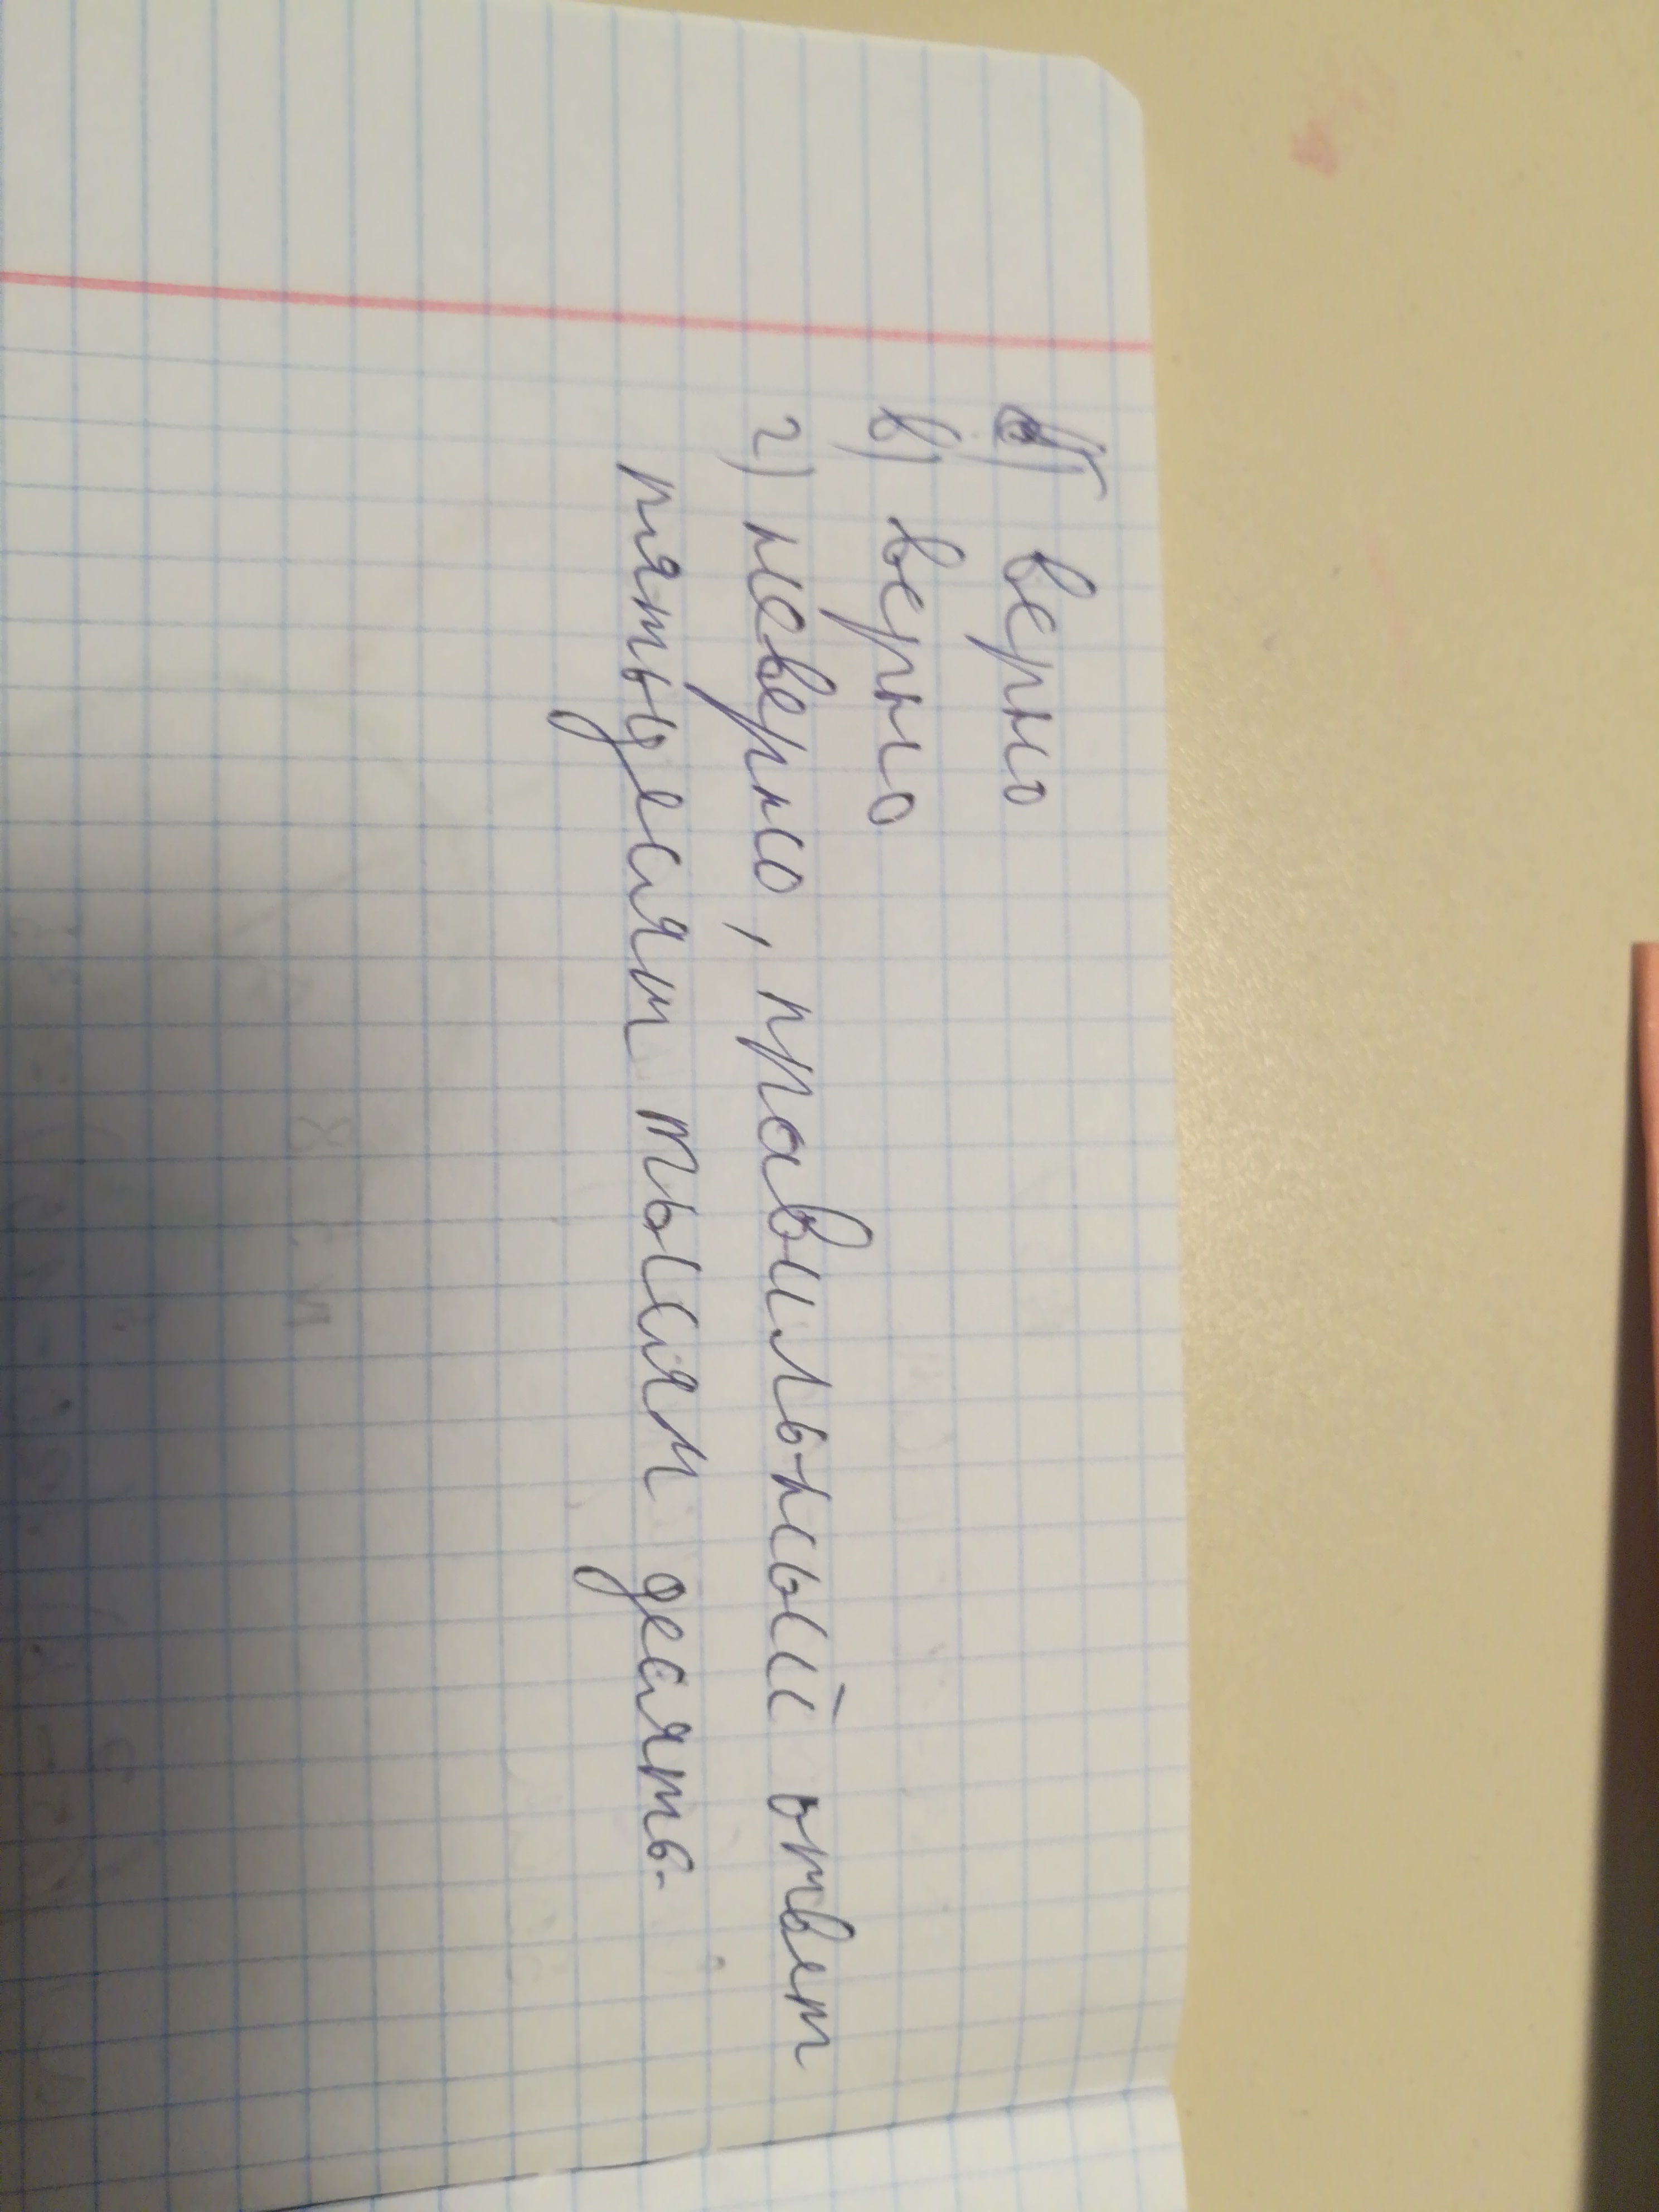 б) верно
в) верно
г) неверно, правильный ответ
пятьидесят тысяч десять.